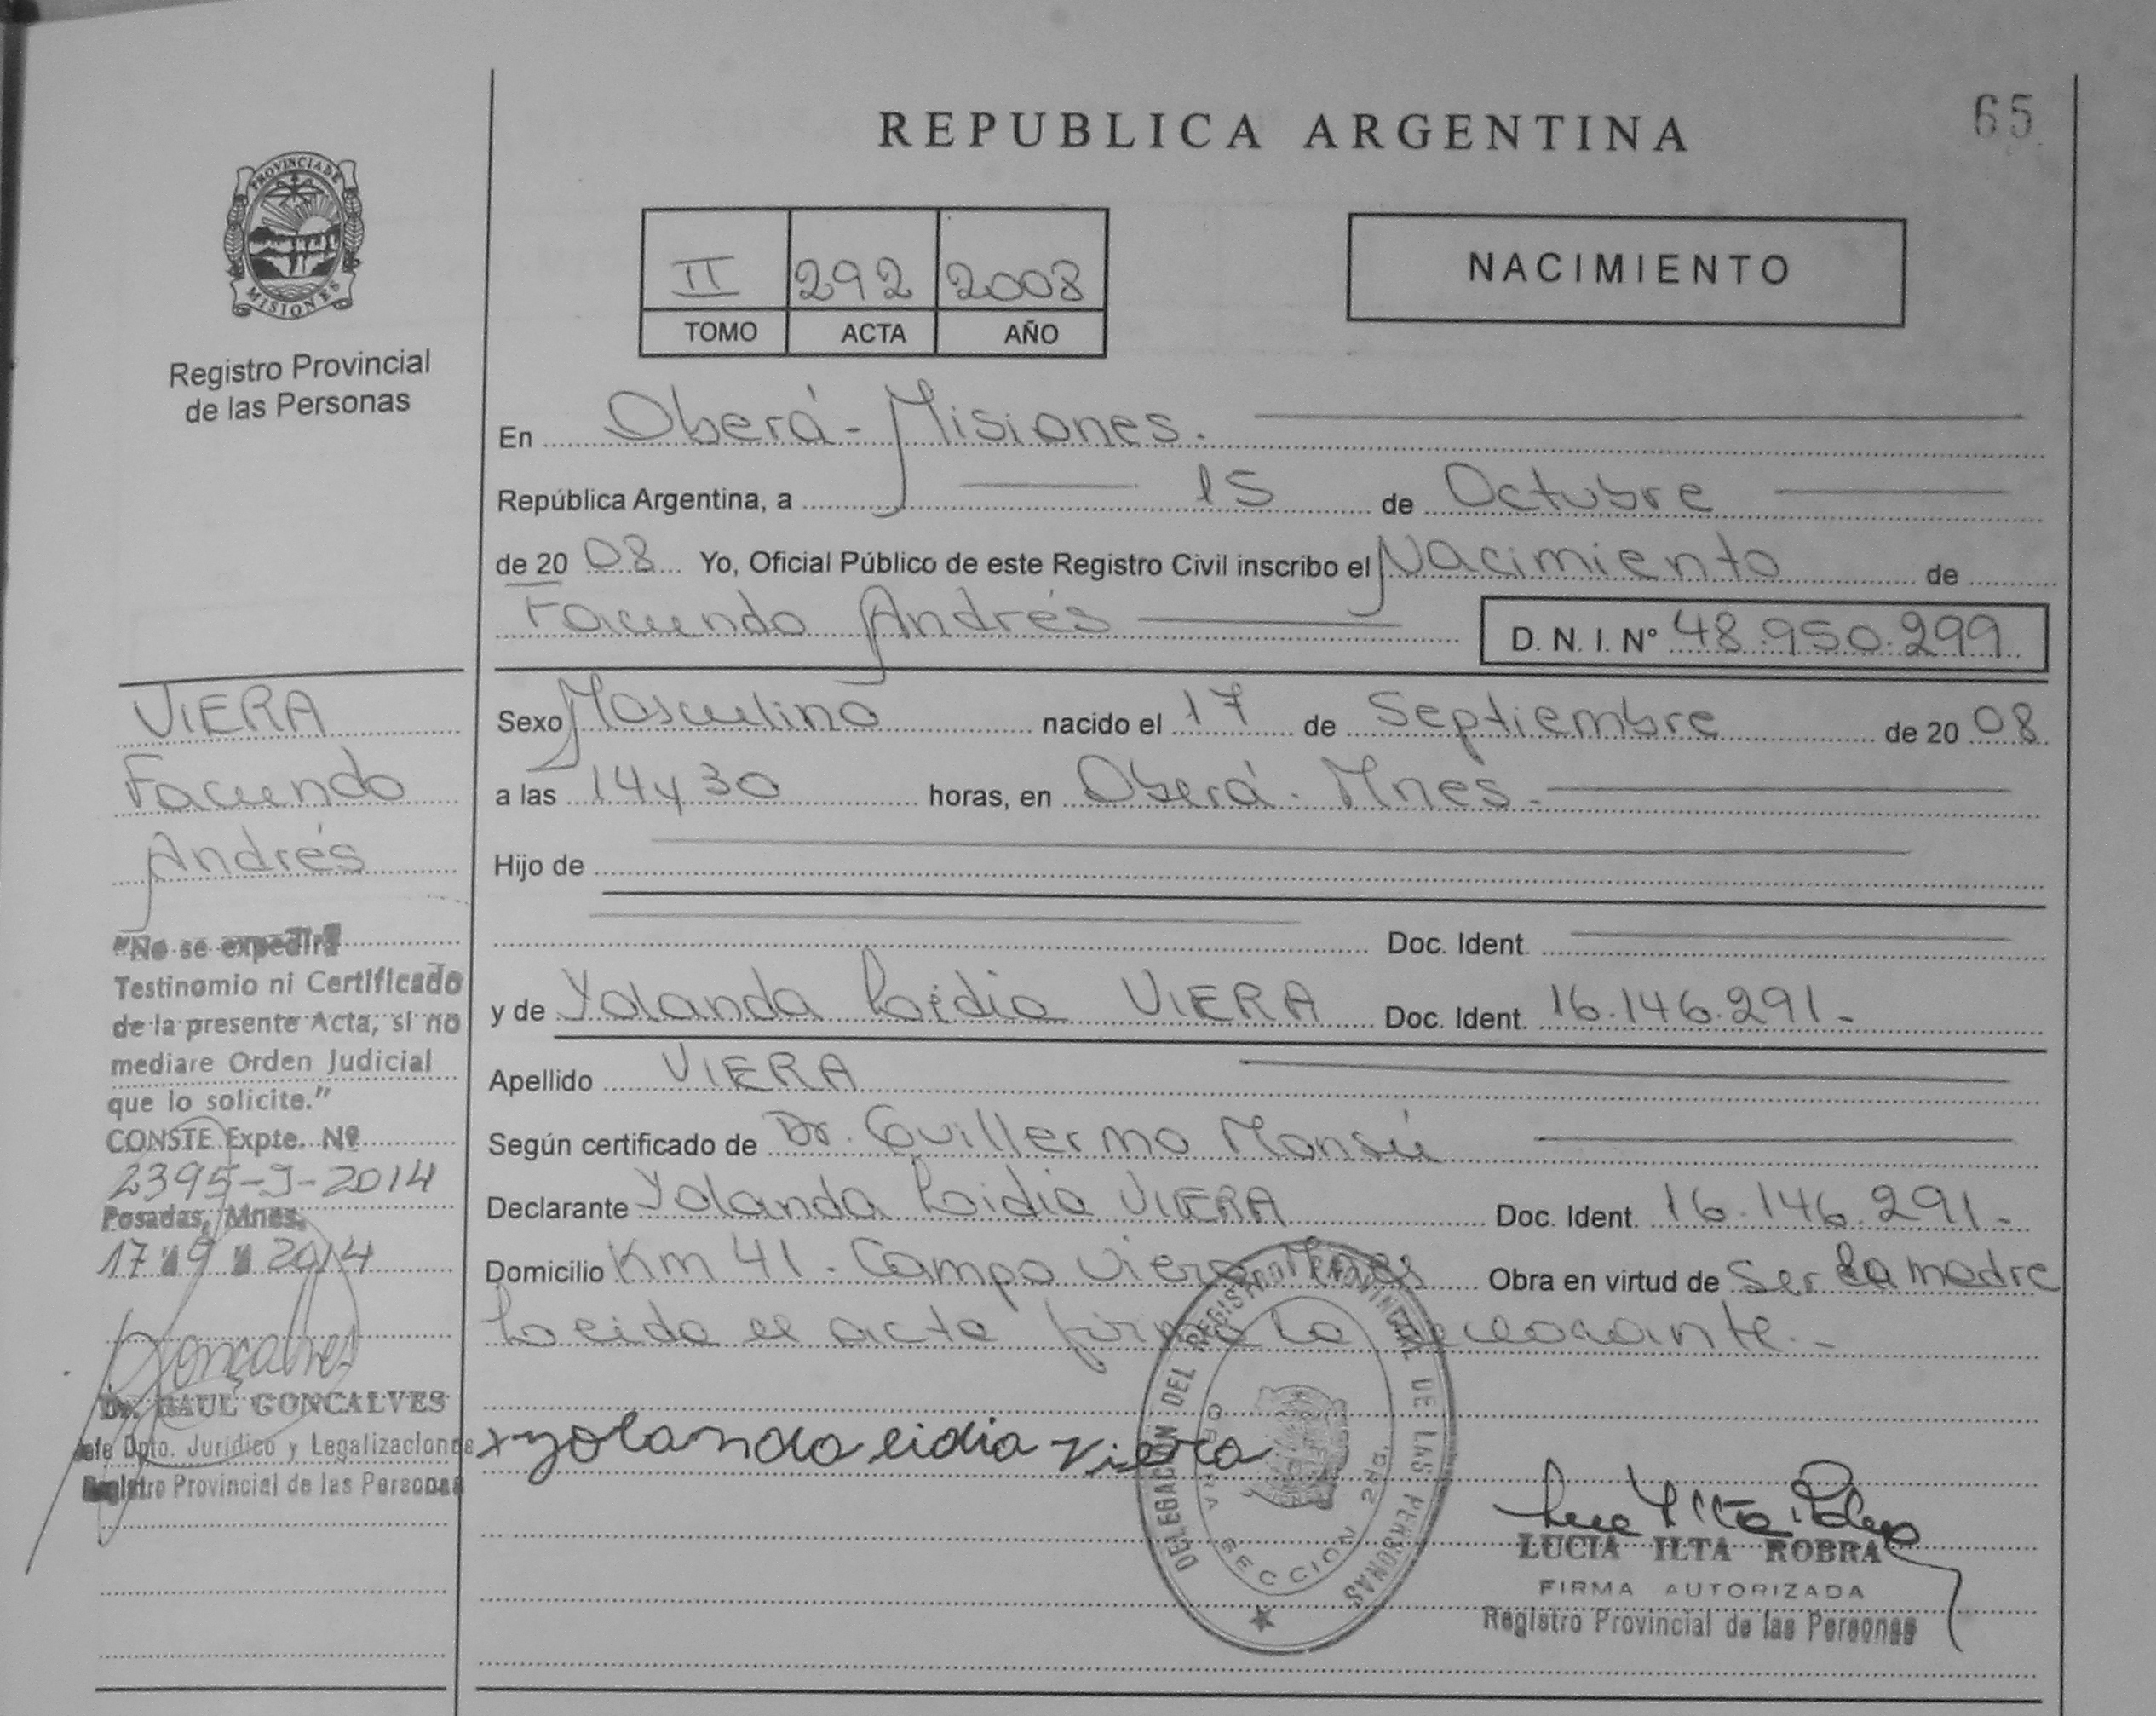 REPUBLICA ARGENTINA
65
PROVINCIA DE
MISIONES
Registro Provincial
de las Personas
II 292 2008
TOMO ACTA AÑO
NACIMIENTO
En Oberá - Misiones.
República Argentina, a 15 de Octubre
de 20 08 Yo, Oficial Público de este Registro Civil inscribo el Nacimiento de
Facundo Andrés D. N. I. Nº 48.950.299
Sexo Masculino nacido el 17 de Septiembre de 20 08
a las 14 y 30 horas, en Oberá - Mnes.
Hijo de
Doc. Ident.
y de Yolanda Leidia VIERA Doc. Ident. 16.146.291.-
Apellido VIERA
Según certificado de Dr. Guillermo Monsú
Declarante Yolanda Leidia VIERA Doc. Ident. 16.146.291.-
Domicilio Km 41. Campo Viera Mnes Obra en virtud de Ser la madre
Leida el acta firma la declarante.-
x yolanda eidia Viera
DELEGACION DEL REGISTRO PROVINCIAL DE LAS PERSONAS
OBERA SECCION 2da.
LUCIA ILTA ROBRA
FIRMA AUTORIZADA
Registro Provincial de las Personas
VIERA
Facundo
Andrés
"No se expedirá
Testinomio ni Certificado
de la presente Acta, si no
mediare Orden Judicial
que lo solicite."
CONSTE Expte. Nº
2395-J-2014
Posadas, Mnes.
17 9 2014
Goncalves
Dr. RAUL GONCALVES
Jefe Dpto. Jurídico y Legalizaciones
Registro Provincial de las Personas